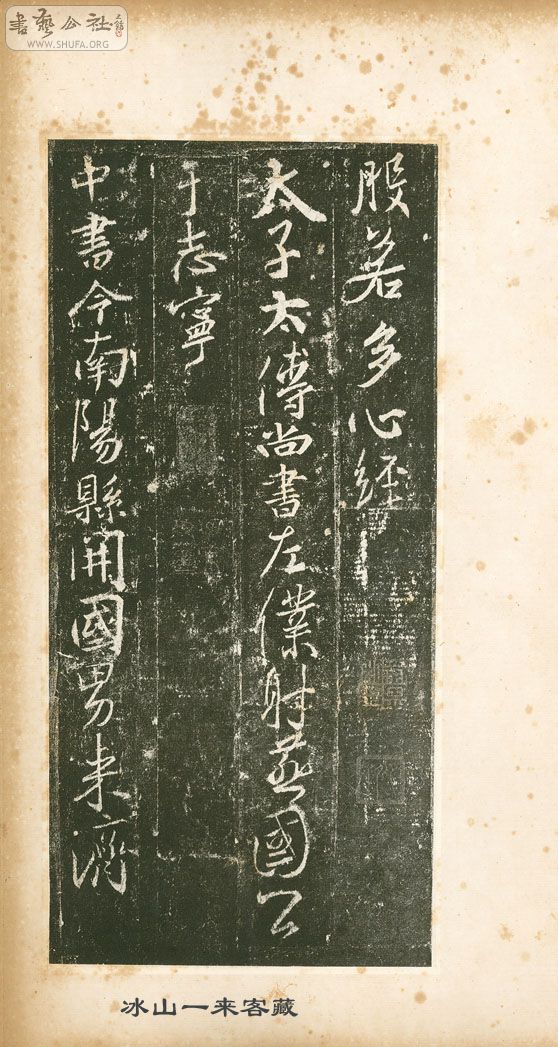 書藝公社
WWW.SHUFA.ORG
般若多心經
太子太傅尚書左僕射燕國公
于志寧
中書令南陽縣開國男来濟
冰山一来客藏